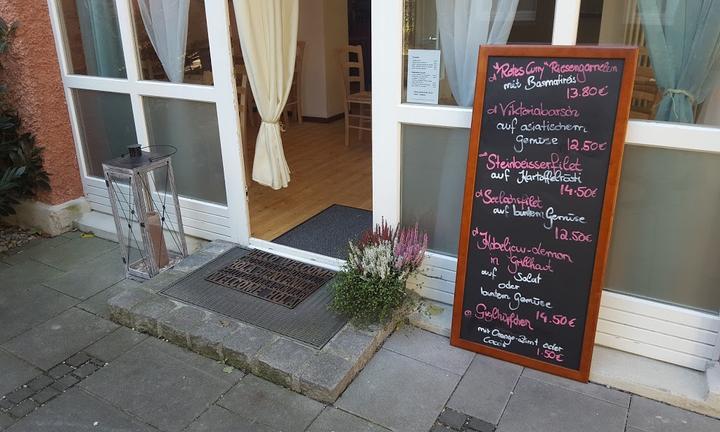 "Rotes Curry" Riesengarnelen
mit Basmatireis
13.80€
Viktoriabarsch
auf asiatischem
Gemüse 12.50€
Steinbeisserfilet
auf Kartoffelrösti
14.50€
Seelachsfilet
auf buntem Gemüse
12.50€
Kabeljau-
in Grillhaut
auf Salat
oder
buntem Gemüse
14.50€
mit Orange-Zimt oder
1.50€